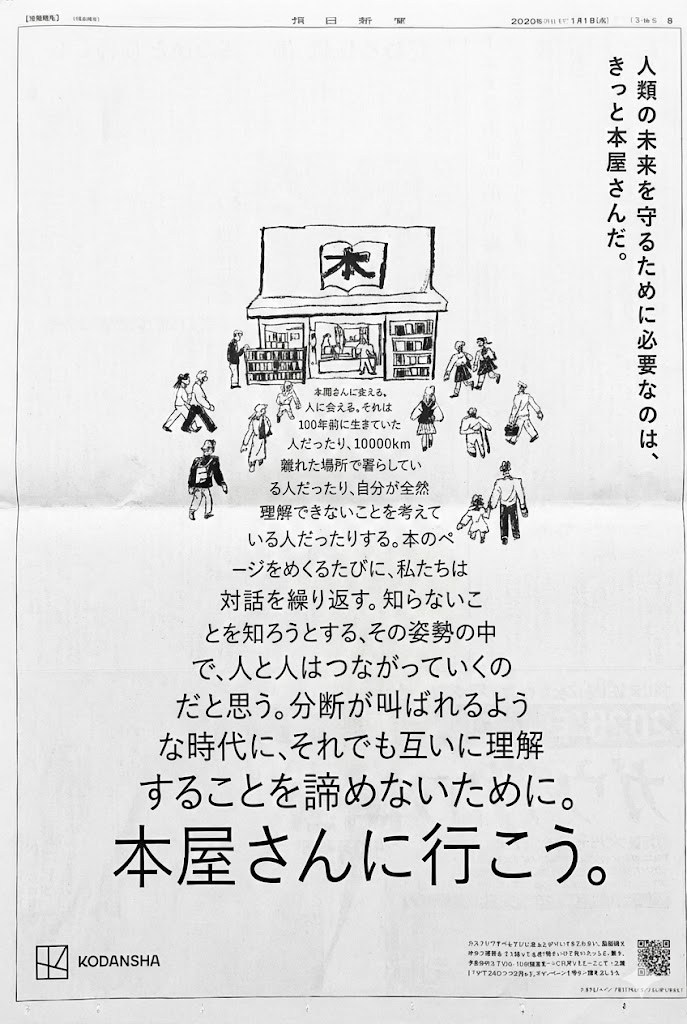 2020 1月1日 8
人類の未来を守るために必要なのは、
きっと本屋さんだ。
本
さんに
人に会える。それは
100年前に生きていた
人だったり、10000km
離れた場所で暮らしてい
る人だったり、自分が全然
理解できないことを考えて
いる人だったりする。本のペ
ージをめくるたびに、私たちは
対話を繰り返す。知らないこ
とを知ろうとする、その姿勢の中
で、人と人はつながっていくの
だと思う。分断が叫ばれるよう
な時代に、それでも互いに理解
することを諦めないために。
本屋さんに行こう。
KODANSHA